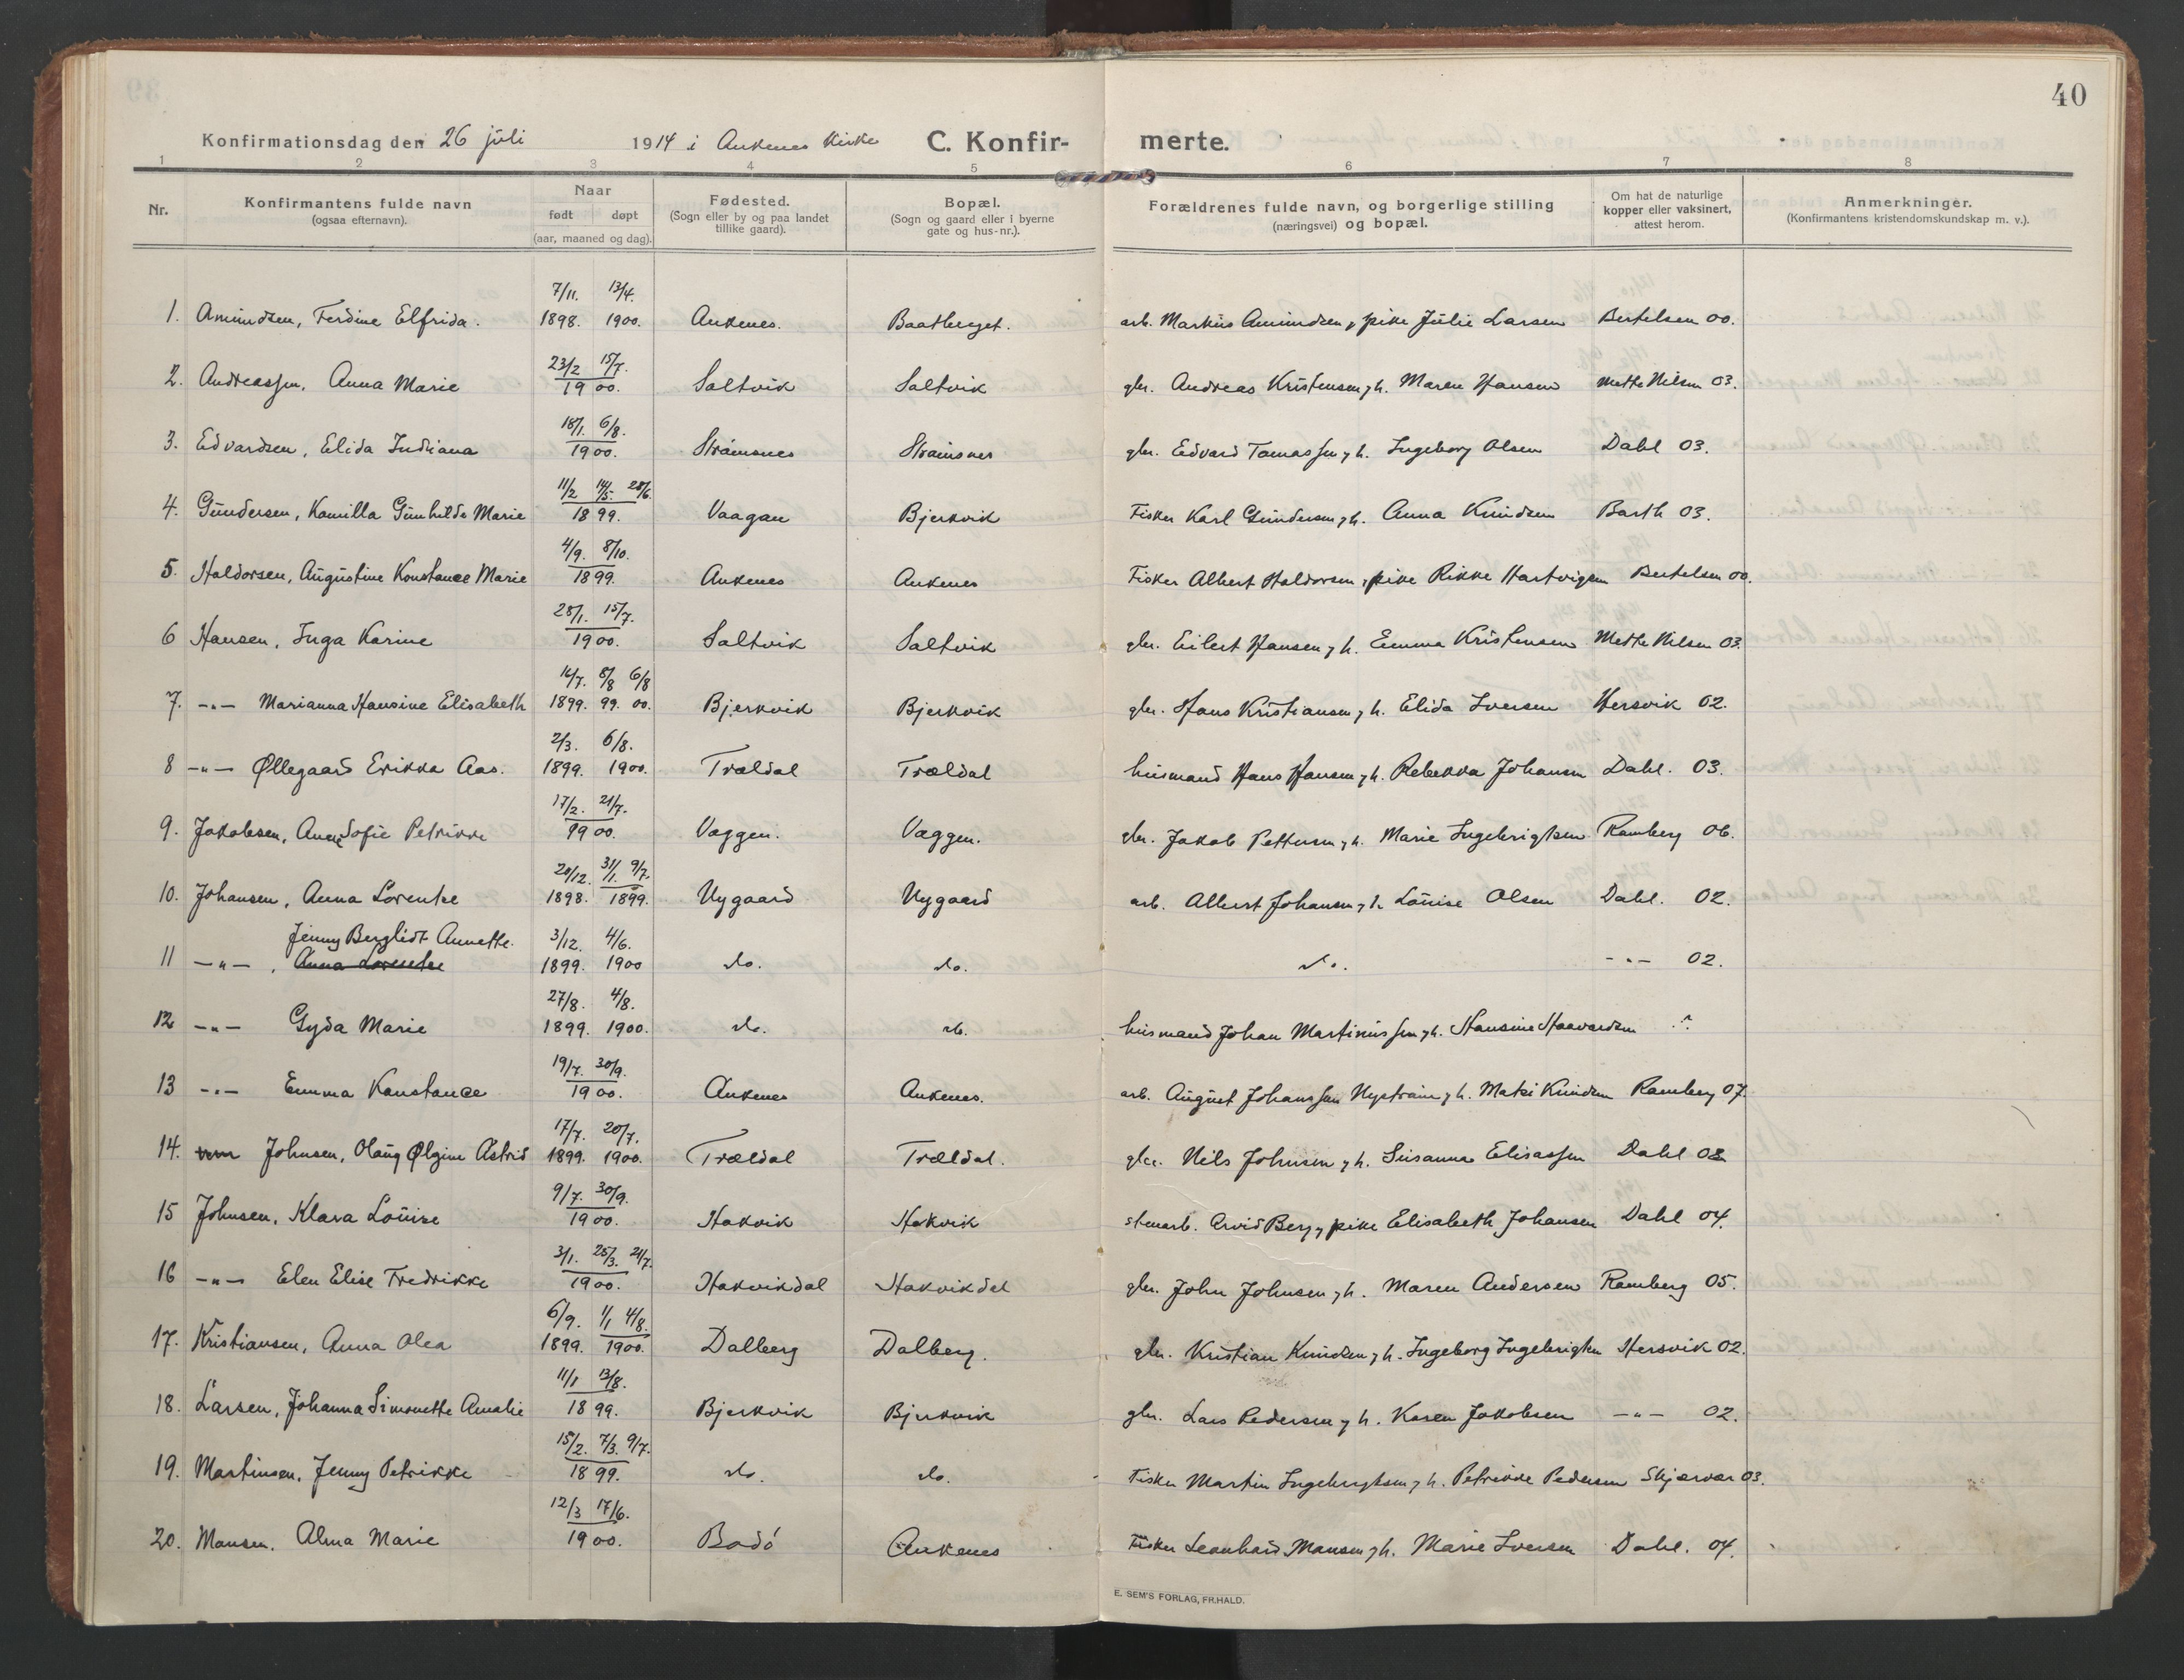 40
Konfirmationsdag den 26 juli 1914 i Ankenes Kirke C. Konfirmerte.
1 2 3 4 5 6 7 8
Nr. Konfirmantens fulde navn (ogsaa efternavn). Naar født døpt (aar, maaned og dag). Fødested. (Sogn eller by og paa landet tillike gaard). Bopæl. (Sogn og gaard eller i byerne gate og hus-nr.). Forældrenes fulde navn, og borgerlige stilling (næringsvei) og bopæl. Om hat de naturlige kopper eller vaksinert, attest herom. Anmerkninger. (Konfirmantens kristendomskundskap m. v.).
7/11. 13/4.
1. Amundsen, Ferdine Elfrida. 1898. 1900. Ankenes. Baatberget. arb. Markus Amundsen, pike Julie Larsen Bertelsen 00.
23/2 15/7.
2. Andreassen, Anna Marie 1900. Saltvik Saltvik gbr. Andreas Kristensen, h. Maren Hansen Mette Nilsen 03.
18/1. 6/8.
3. Edvardsen, Elida Indiana 1900. Straumsnes Straumsnes gbr. Edvard Tomassen, h. Ingeborg Olsen Dahl 03.
11/2 14/5. 28/6.
4. Gundersen, Kamilla Gunhilde Marie 1899. Vaagan Bjerkvik Fisker Karl Gundersen, h. Anna Knudsen Barth 03.
4/9. 8/10.
5. Haldorsen, Augustine Konstance Marie 1899. Ankenes Ankenes Fisker Albert Haldorsen, pike Rikke Hartvigsen Bertelsen 00.
28/1. 15/7.
6 Hansen, Inga Karine 1900. Saltvik Saltvik gbr. Eilert Hansen, h. Emma Kristensen Mette Nilsen 03.
14/7. 8/8 6/8
7. -"- Marianna Hansine Elisabeth 1899. 99. 00. Bjerkvik Bjerkvik gbr. Hans Kristiansen, h. Elida Iversen Hersvik 02.
2/3. 6/8.
8 -"- Øllegaard Erikka Aas. 1899. 1900. Trældal Trældal husmand Hans Hansen, h. Rebekka Johansen Dahl. 03.
17/2. 21/7.
9. Jakobsen, Anne Sofie Petrikke 1900. Væggen. Væggen. gbr. Jakob Pettersen, h. Marie Ingebrigtsen Ramberg 06.
20/12. 31/1. 9/7.
10. Johansen, Anna Lorentse 1898. 1899. Nygaard Nygaard arb. Albert Johansen, h. Louise Olsen Dahl. 02.
Jenny Berglidt Annette. 3/12. 4/6.
11 -"-, Anna Lorentse 1899. 1900 do. do. do. -"- 02.
27/8. 4/8.
12 -"- Gyda Marie 1899. 1900. do. do. husmand Johan Martinussen, h. Hansine Haavardsen
19/7. 30/9.
13 -"- Emma Konstance 1900. Ankenes Ankenes. arb. August Johanssen Nystrøm, h. Matsi Knudsen Ramberg 07.
17/7. 20/7.
14. Johnsen, Olaug Ølgine Astrid 1899. 1900. Træidal Træidal. gbr. Nils Johnsen, h. Susanna Eliassen Dahl 02
9/7. 30/9.
15 Johnsen, Klara Louise 1900. Hakvik Hakvik stenarb. Arvid Berg, pike Elisabeth Johansen Dahl 04.
3/1. 25/3. 21/7.
16 -"- Elen Elise Fredrikke 1900. Hakvikdal Hakvikdal gbr. John Johnsen, h. Maren Andersen Ramberg 05.
6/9. 1/1 4/8.
17. Kristiansen, Anna Olea 1899. 1900. Dalberg Dalberg. gbr. Kristian Knudsen, h. Ingeborg Ingebrigtsen Hersvik 02.
11/1 13/8.
18. Larsen, Johanna Simonette Amalie 1899. Bjerkvik Bjerkvik gbr. Lars Pedersen, h. Karen Jakobsen -"- 02.
15/2. 7/3. 9/7.
19. Martinsen, Jenny Petrikke 1899. do. do. Fisker Martin Ingebrigtsen, h. Petrikke Pedersen Skjærvær 03.
12/3 17/6.
20. Monsen. Alma Marie 1900. Bodö Ankenes Fisker Leonhard Monsen, h. Marie Iversen Dahl. 04.
E. SEM'S FORLAG, FR.HALD.